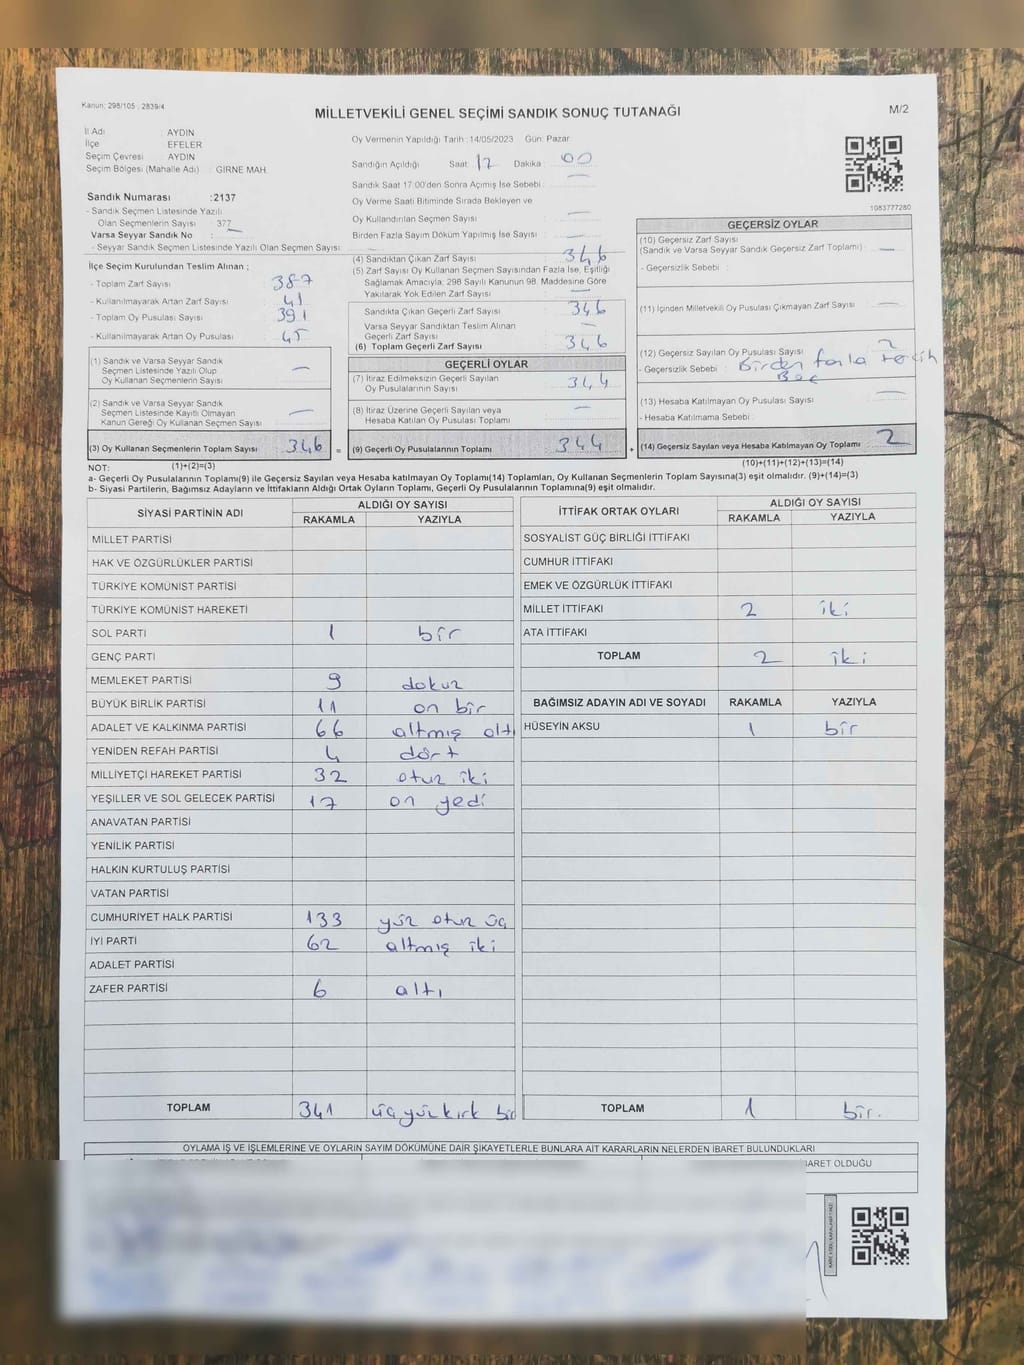 Kanun; 298/105 , 2839/4
MİLLETVEKİLİ GENEL SEÇİMİ SANDIK SONUÇ TUTANAĞI
M/2
İl Adı : AYDIN
İlçe EFELER
Seçim Çevresi : AYDIN
Seçim Bölgesi (Mahalle Adı) : GİRNE MAH.
Oy Vermenin Yapıldığı Tarih : 14/05/2023 Gün: Pazar
Sandığın Açıldığı Saat 17 Dakika : 00
Sandık Saat 17:00'den Sonra Açımış İse Sebebi :
Oy Verme Saati Bitiminde Sırada Bekleyen ve
Oy Kullandırılan Seçmen Sayısı :
Birden Fazla Sayım Döküm Yapılmış İse Sayısı :
1083777280
Sandık Numarası :2137
- Sandık Seçmen Listesinde Yazılı
Olan Seçmenlerin Sayısı : 377
Varsa Seyyar Sandık No :
- Seyyar Sandık Seçmen Listesinde Yazılı Olan Seçmen Sayısı :
İlçe Seçim Kurulundan Teslim Alınan ;
- Toplam Zarf Sayısı : 387
- Kullanılmayarak Artan Zarf Sayısı : 41
- Toplam Oy Pusulası Sayısı : 391
- Kullanılmayarak Artan Oy Pusulası : 45
(1) Sandık ve Varsa Seyyar Sandık
Seçmen Listesinde Yazılı Olup
Oy Kullanan Seçmenlerin Sayısı : —
(2) Sandık ve Varsa Seyyar Sandık
Seçmen Listesinde Kayıtlı Olmayan
Kanun Gereği Oy Kullanan Seçmen Sayısı : —
(3) Oy Kullanan Seçmenlerin Toplam Sayısı : 346
(4) Sandıktan Çıkan Zarf Sayısı : 346
(5) Zarf Sayısı Oy Kullanan Seçmen Sayısından Fazla İse, Eşitliği
Sağlamak Amacıyla; 298 Sayılı Kanunun 98. Maddesine Göre
Yakılarak Yok Edilen Zarf Sayısı : —
Sandıkta Çıkan Geçerli Zarf Sayısı : 346
Varsa Seyyar Sandıktan Teslim Alınan
Geçerli Zarf Sayısı : —
(6) Toplam Geçerli Zarf Sayısı : 346
GEÇERLİ OYLAR
(7) İtiraz Edilmeksizin Geçerli Sayılan
Oy Pusulalarının Sayısı : 344
(8) İtiraz Üzerine Geçerli Sayılan veya
Hesaba Katılan Oy Pusulası Toplamı : —
= (9) Geçerli Oy Pusulalarının Toplamı : 344
GEÇERSİZ OYLAR
(10) Geçersiz Zarf Sayısı
(Sandık ve Varsa Seyyar Sandık Geçersiz Zarf Toplamı) : —
- Geçersizlik Sebebi :
(11) İçinden Milletvekili Oy Pusulası Çıkmayan Zarf Sayısı : —
(12) Geçersiz Sayılan Oy Pusulası Sayısı : 2
- Geçersizlik Sebebi : Birden fazla tercih
(13) Hesaba Katılmayan Oy Pusulası Sayısı : —
- Hesaba Katılmama Sebebi :
+ (14) Geçersiz Sayılan veya Hesaba Katılmayan Oy Toplamı : 2
NOT: (1)+(2)=(3)
(10)+(11)+(12)+(13)=(14)
a- Geçerli Oy Pusulalarının Toplamı(9) ile Geçersiz Sayılan veya Hesaba katılmayan Oy Toplamı(14) Toplamları, Oy Kullanan Seçmenlerin Toplam Sayısına(3) eşit olmalıdır. (9)+(14)=(3)
b- Siyasi Partilerin, Bağımsız Adayların ve İttifakların Aldığı Ortak Oyların Toplamı, Geçerli Oy Pusulalarının Toplamına(9) eşit olmalıdır.
SİYASİ PARTİNİN ADI ALDIĞI OY SAYISI
RAKAMLA YAZIYLA
MİLLET PARTİSİ
HAK VE ÖZGÜRLÜKLER PARTİSİ
TÜRKİYE KOMÜNİST PARTİSİ
TÜRKİYE KOMÜNİST HAREKETİ
SOL PARTİ 1 bir
GENÇ PARTİ
MEMLEKET PARTİSİ 9 dokuz
BÜYÜK BİRLİK PARTİSİ 11 on bir
ADALET VE KALKINMA PARTİSİ 66 altmış altı
YENİDEN REFAH PARTİSİ 4 dört
MİLLİYETÇİ HAREKET PARTİSİ 32 otuz iki
YEŞİLLER VE SOL GELECEK PARTİSİ 17 on yedi
ANAVATAN PARTİSİ
YENİLİK PARTİSİ
HALKIN KURTULUŞ PARTİSİ
VATAN PARTİSİ
CUMHURİYET HALK PARTİSİ 133 yüz otuz üç
İYİ PARTİ 62 altmış iki
ADALET PARTİSİ
ZAFER PARTİSİ 6 altı
TOPLAM 341 üç yüz kırk bir
İTTİFAK ORTAK OYLARI ALDIĞI OY SAYISI
RAKAMLA YAZIYLA
SOSYALİST GÜÇ BİRLİĞİ İTTİFAKI
CUMHUR İTTİFAKI
EMEK VE ÖZGÜRLÜK İTTİFAKI
MİLLET İTTİFAKI 2 iki
ATA İTTİFAKI
TOPLAM 2 iki
BAĞIMSIZ ADAYIN ADI VE SOYADI RAKAMLA YAZIYLA
HÜSEYİN AKSU 1 bir
TOPLAM 1 bir.
OYLAMA İŞ VE İŞLEMLERİNE VE OYLARIN SAYIM DÖKÜMÜNE DAİR ŞİKAYETLERLE BUNLARA AİT KARARLARIN NELERDEN İBARET BULUNDUKLARI
BARET OLDUĞU